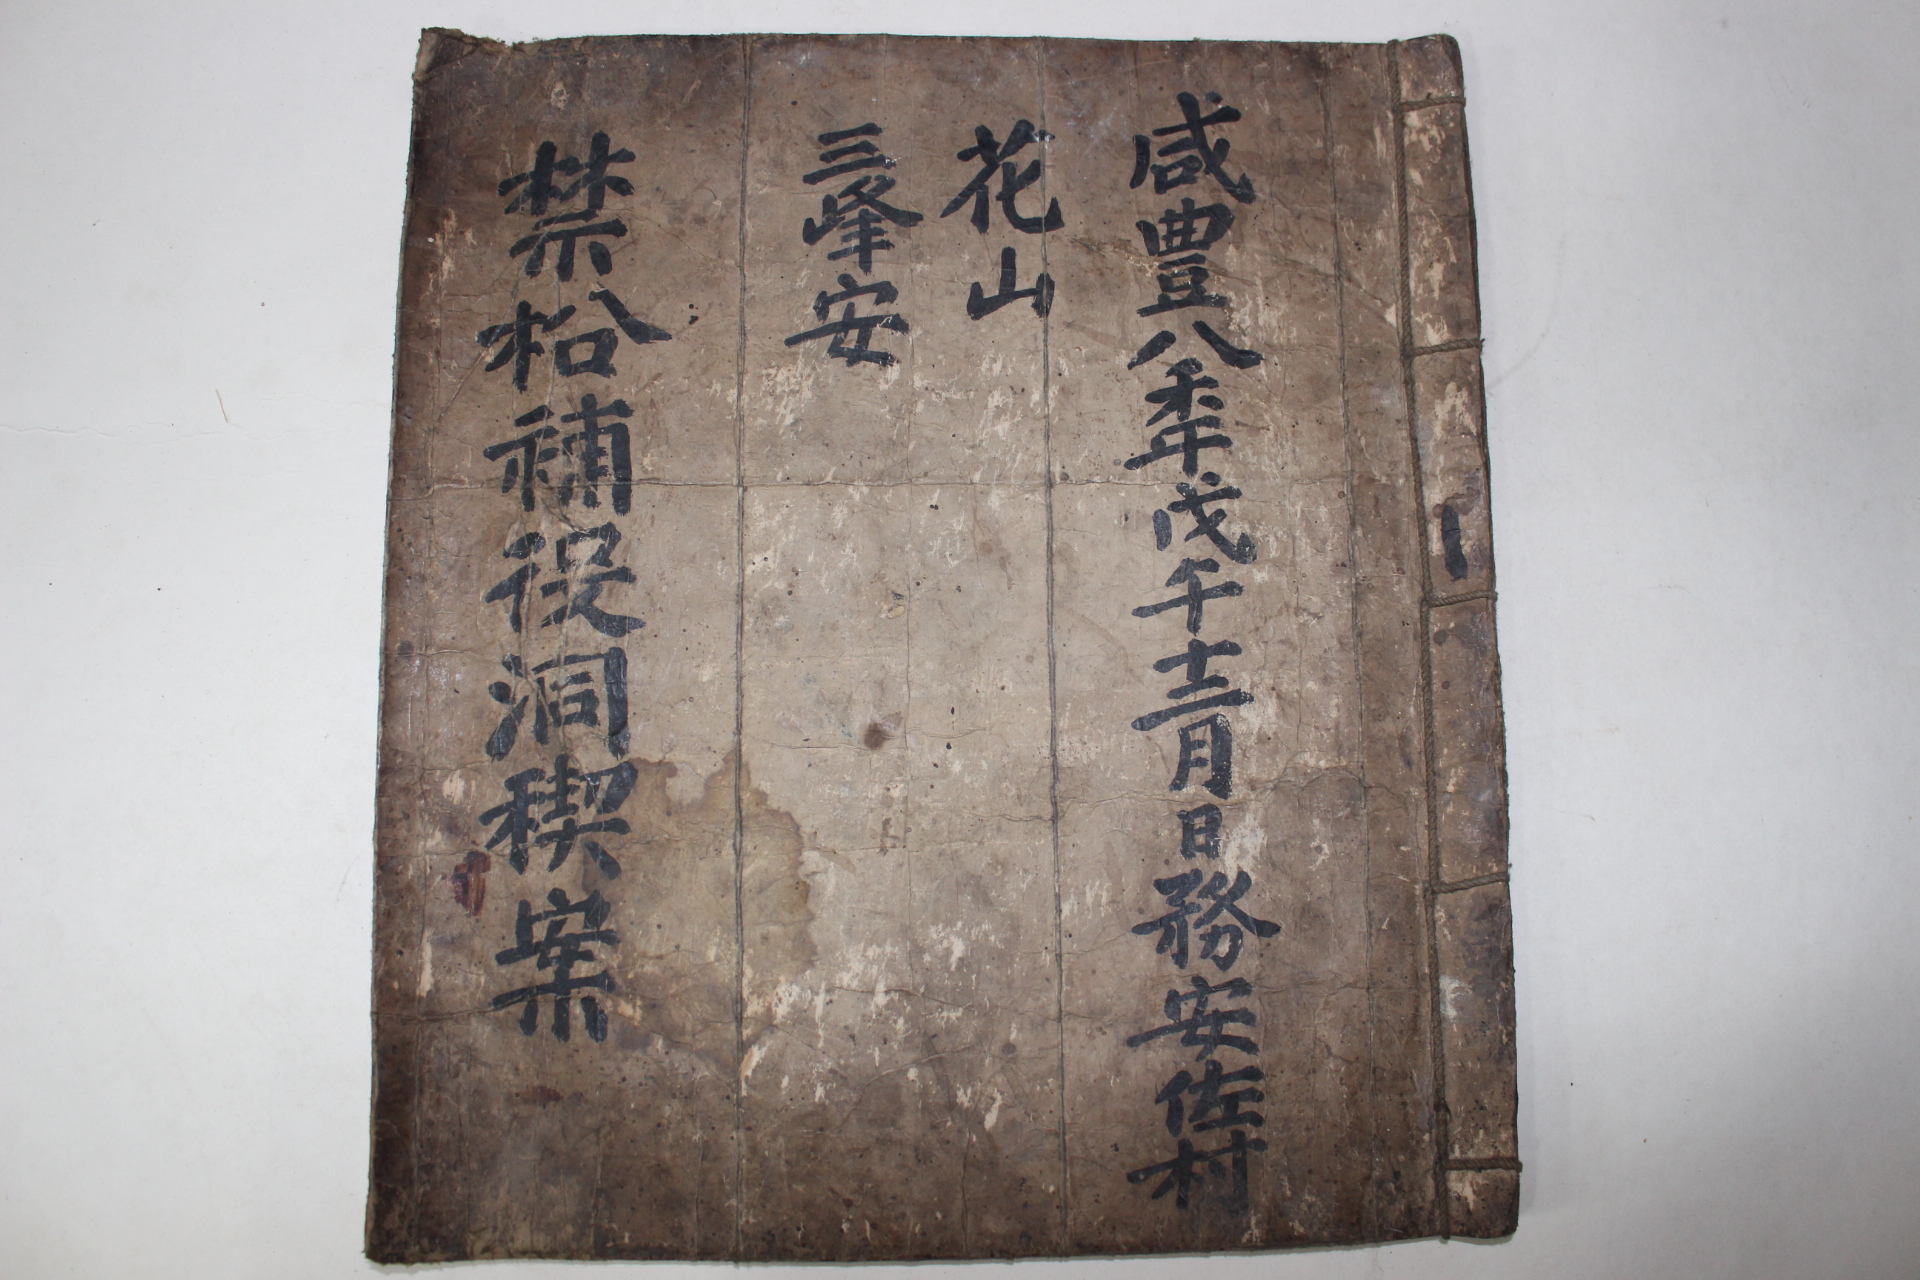 咸豊八年秊戊午十二月日務安佐村
花山
三峰安
禁松補役洞稧案